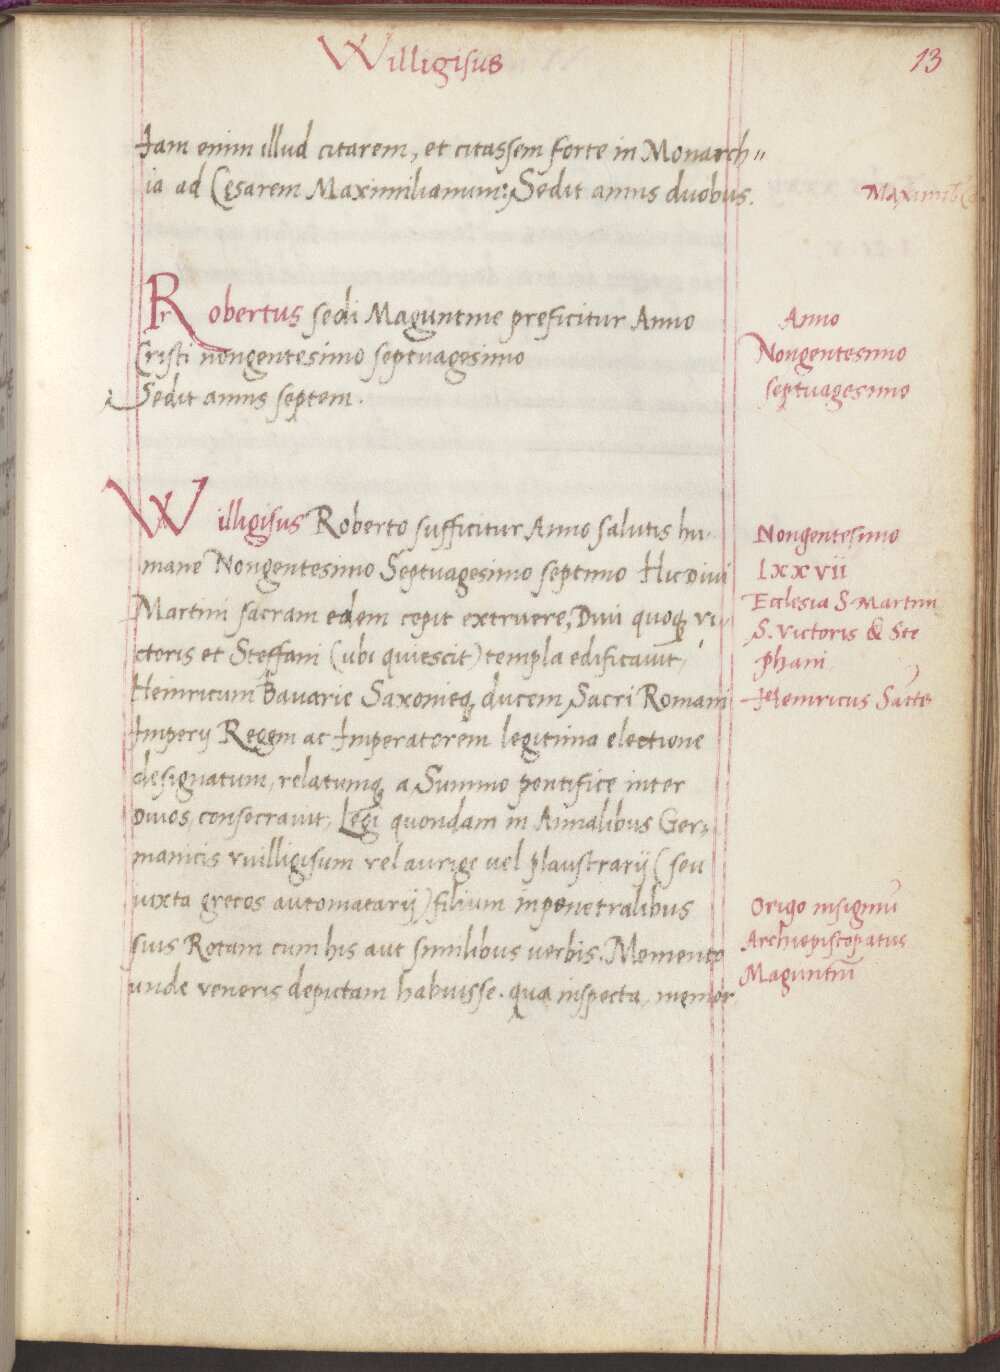 Willigisus
13
Iam enim illud citarem, et citassem forte in Monarch〃
ia ad Cęsarem Maximilianum: Sedit annis duobus.
Robertus sedi Maguntine preficitur Anno
Cristi nongentesimo septuagesimo
Sedit annis septem.
Willigisus Roberto sufficitur Anno salutis hu-
mane Nongentesimo Septuagesimo septimo Hic Divi
Martini sacram edem cepit extruere, Divi quoqȝ vi-
ctoris et Steffani (ubi quiescit) templa edificavit,
Heinricum Bavarie Saxonieqȝ ducem Sacri Romani
Imperij Regem ac Imperatorem legitima electione
designatum, relatumqȝ a Summo pontifice inter
Divos, consecravit, Legi quondam in Annalibus Ger〃
manicis vuilligisum vel aurige vel plaustrarij (seu
iuxta grecos automatarij) filium in penetralibus
suis Rotam cum his aut similibus verbis. Memento
unde veneris depictam habuisse. qua inspecta, memor
Anno
Nongentesimo
septuagesimo
Nongentesimo
LXXVII
Ecclesia S. Martini
S. Victoris & Ste
phani
Heinricus Sacte
Origo insigniū
Archiepiscopatus
Maguntini